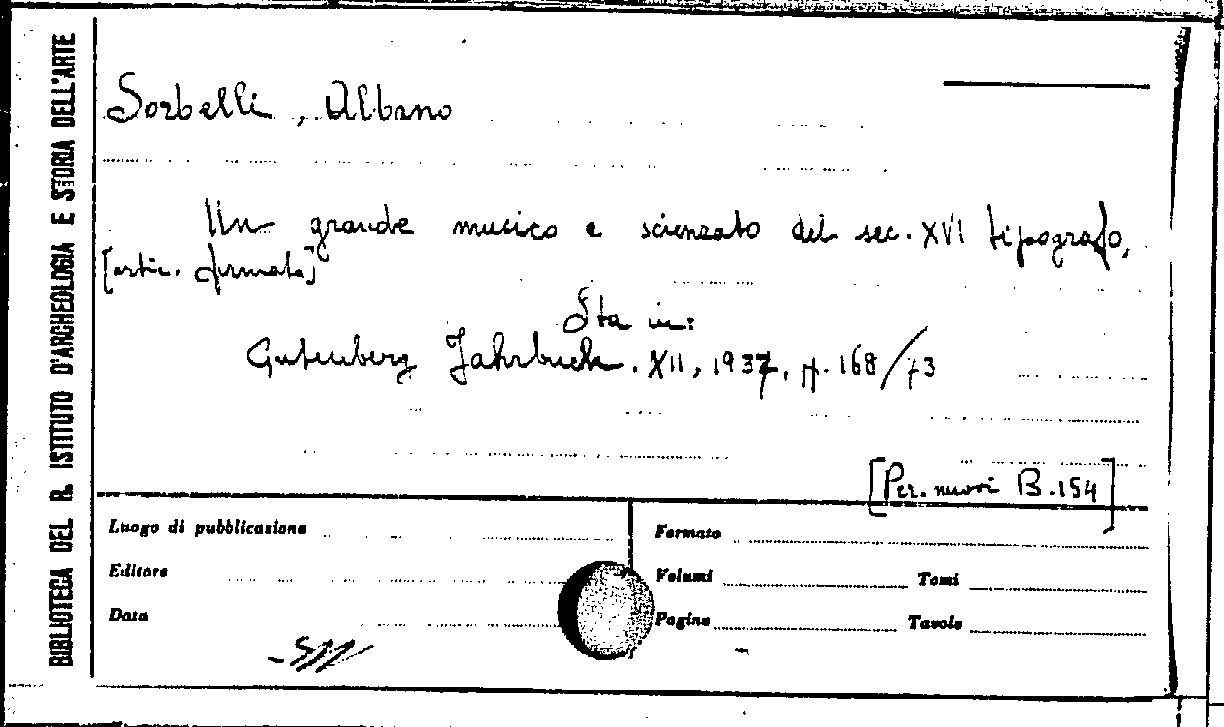 BIBLIOTECA DEL R. ISTITUTO D'ARCHEOLOGIA E STORIA DELL'ARTE
Sorbelli, Albano
Un grande musico e scienzato del sec. XVI tipografo,
[artic. firmato]
Sta in:
Gutenberg Jahrbuch. XII, 1937, p. 168/73
[Per. nuovi B.154]
Luogo di pubblicazione
Formato
Editore
Volumi
Tomi
Data
Pagine
Tavole